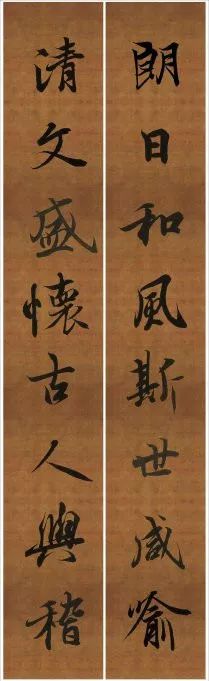 朗日和風斯世咸喻
清文盛懷古人與稽